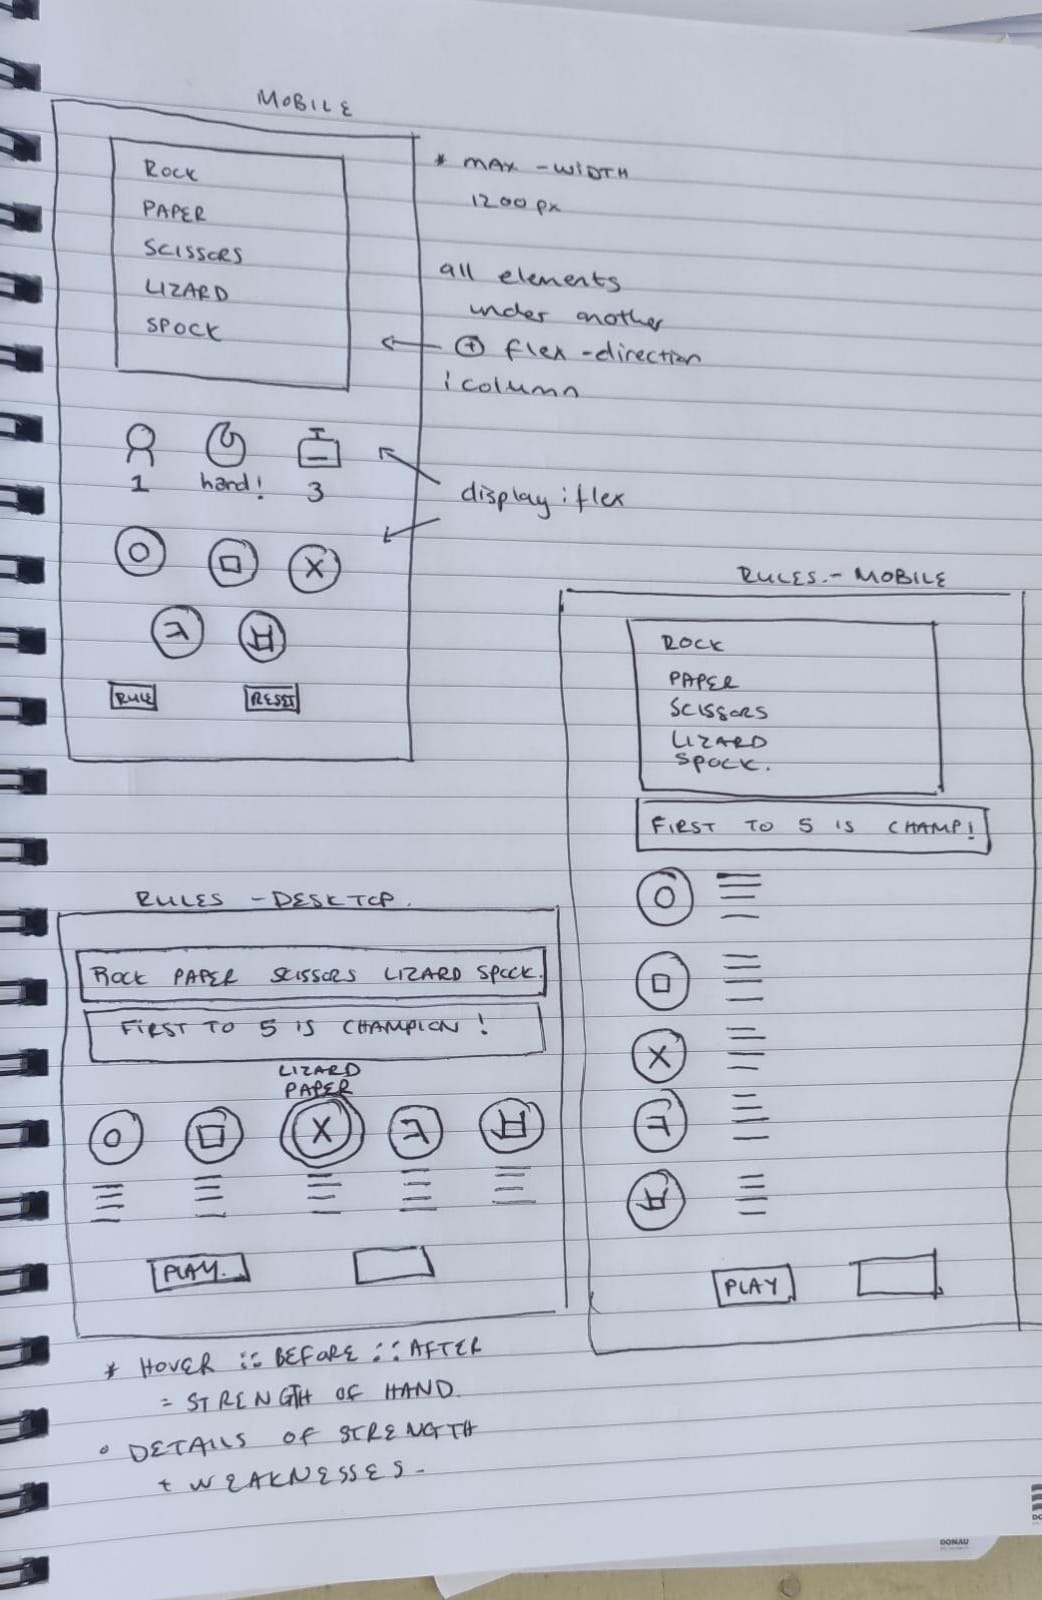 MOBILE
ROCK
PAPER
SCISSORS
LIZARD
SPOCK
* MAX - WIDTH
1200 px
all elements
under another
flex - direction
: column
1 hand! 3
display : flex
X
RULE RESET
RULES. - MOBILE
ROCK
PAPER
SCISSORS
LIZARD
SPOCK.
FIRST TO 5 IS CHAMP!
X
PLAY
RULES - DESKTOP.
ROCK PAPER SCISSORS LIZARD SPOCK.
FIRST TO 5 IS CHAMPION !
LIZARD
PAPER
X
PLAY.
* HOVER :: BEFORE :: AFTER
= STRENGTH OF HAND.
DETAILS OF STRENGTH
+ WEAKNESSES -
DONAU